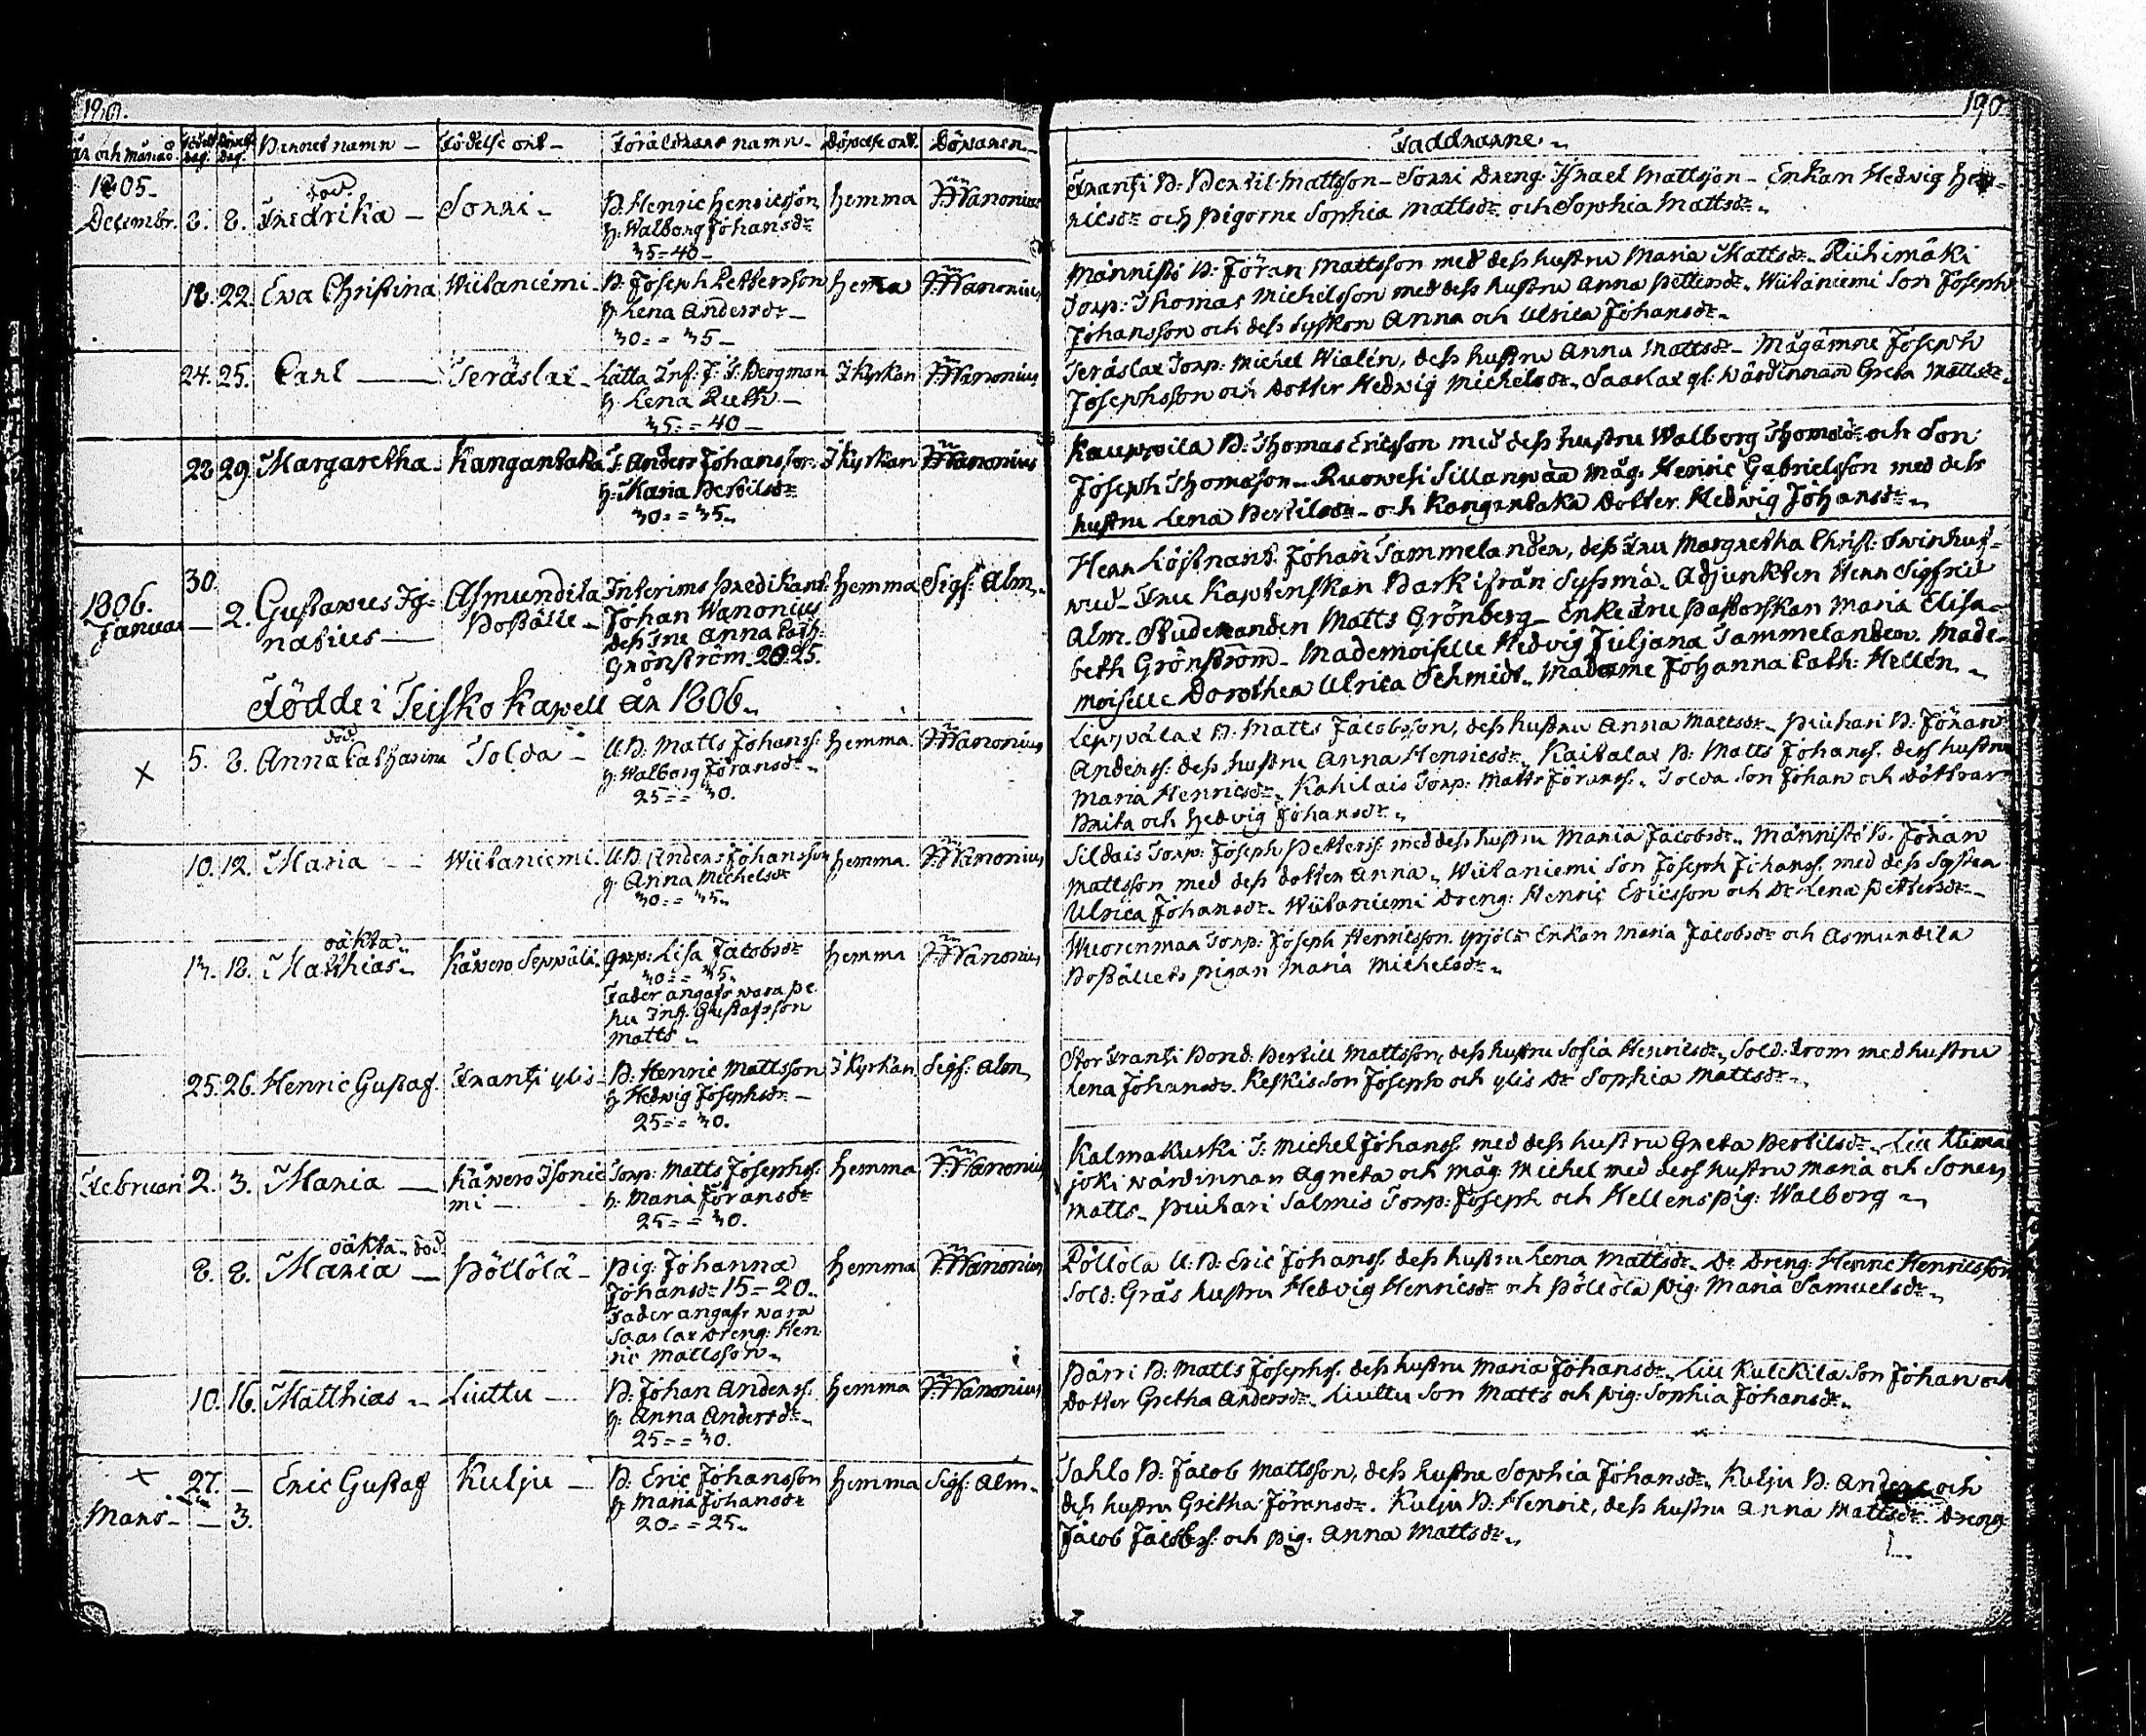 190.
År och månad. Födelse dag. Döpelse dag. Barnets namn — Födelse ort — Föräldrarnes namn — Döpelse ort. Döparen —
1805. död.
Decembr. 8. 8. Fredrika — Sorri — B. Henric Henricsson hemma J. Wanonius
h. Walborg Johansdr
35=40 —
18. 22. Eva Christina Wiitaniemi — B. Joseph Pettersson hema J. Wanonius
h. Lena Andersdr —
30 = 35 —
24. 25. Carl — Teräslax — Lätta Inf. J. Bergman I Kyrkan J. Wanonius
h. Lena Ruth —
35 = 40 —
28 29. Margaretha — Kangantaka T. Anders Johansson I Kyrkan J. Wanonius
h. Maria Bertilsdr
30 = 35.
30.
1806. Januar — 2. Gustavus Ig= Asmundila Interims Predikant hemma Sigf. Alm.
natius — Boställe — Johan Wanonius
dess Fru Anna Cath:
Grönström. 20=25.
Födde i Teisko Kapell År 1806.
död.
× 5. 8. Anna Catharina Tolda — U.B. Matts Johanss. hemma. J. Wanonius
h. Walborg Göransdr
25 = 30.
10. 12. Maria — Wiitaniemi. U.B. Anders Johansson hemma. J. Wanonius
h. Anna Michelsdr
30 = 35.
oäkta.
13. 18. Matthias. Kåwero Seppälä. Lisa Jacobsdr hemma J. Wanonius
30 = 35.
Fader angafs wara
Gustafsson
Matts.
25. 26. Henric Gustaf. Frantsi ylis — B. Henric Mattsson I Kyrkan Sigf. Alm.
h. Hedwig Josephsdr —
25 = 30.
Februari 2. 3. Maria — Kåwero Isonie Torp. Matts Josephss. hemma J. Wanonius
mi — h. Maria Göransdr
25 = 30.
oäkta. död.
8. 8. Maria — Pöllölä — Pig. Johanna hemma J. Wanonius
Johansdr 15=20.
Fader angafs wara
Saarlax Dreng. Hen
ric Mattsson.
10. 16. Matthias — Liuttu — B. Johan Anderss. hemma J. Wanonius
h. Anna Andersdr
25 = 30.
× 27. — Eric Gustaf Kulju — B. Eric Johansson hemma Sigf. Alm.
h. Maria Johansdr
Mars — — 3. 20 = 25.
190
Faddrarne.
Frantsi B. Bertil Mattsson — Sorri Dreng. Israel Mattsson — Enkan Hedvig Hen=
ricsdr och Pigorne Sophia Mattsdr och Sophia Mattsdr.
Männistö B. Jöran Mattsson med dess hustru Maria Mattsdr. Riihimäki
Torp. Thomas Michelsson med dess hustru Anna Pettersdr. Wiitaniemi Son Joseph
Johansson och dess syskon Anna och Ulrica Johansdr.
Teräslax Torp. Michel Wialén, dess hustru Anna Mattsdr — Mågämne Joseph
Josephsson och Dotter Hedwig Michelsdr. Saarlax gl. Wärdinnan Greta Mattsdr.
Kauppila B. Thomas Ericsson med dess hustru Walborg Thomasdr och Son
Joseph Thomasson — Ruowesi Sillanpää Måg. Henric Gabrielsson med dess
hustru Lena Bertilsdr — och Kangantaka Dotter Hedwig Johansdr.
Herr Löjtnant Johan Tammelander, dess Fru Margretha Christ. Swinhuf=
wud — Fru Kaptenskan Bark ifrån Syssmä. Adjunkten Herr Sigfrid
Alm. Studeranden Matts Grönberg — EnkeFru Pastorskan Maria Elisa=
beth Grönström — Mademoiselle Hedvig Juliana Tammelander. Made=
moiselle Dorothea Ulrica Schmidt. Madame Johanna Cath: Hellén.
Leppälax B. Matts Jacobsson, dess hustru Anna Mattsdr — Piuhari B. Jöran
Anderss. dess hustru Anna Henricsdr. Kaitalax B. Matts Johanss. dess hustru
Maria Henricsdr. Kahilais Torp. Matts Jöranss. Tolda Son Johan och Döttrar
Brita och Hedvig Johansdr.
Sildais Torp. Joseph Petterss. med dess hustru Maria Jacobsdr. Männistö B. Jöran
Mattsson med dess dotter Anna. Wiitaniemi Son Joseph Johanss. med dess Syster
Ulrica Johansdr. Wiitaniemi Dreng. Henric Ericsson och Dr Lena Pettersdr.
Wuorenmaa Torp. Joseph Henricsson. Yrjölä Enkan Maria Jacobsdr och Asmundila
Boställets pigan Maria Michelsdr.
Stor Frantsi Bond. Bertill Mattsson, dess hustru Sofia Henricsdr, Sold. From med hustru
Lena Johansdr. Keskis Son Joseph och ylis Dr Sophia Mattsdr.
Kalmakurki T. Michel Johanss. med dess hustru Greta Bertilsdr. Liu
joki wärdinnan Agneta och Måg. Michel med dess hustru Maria och Sonen
Matts — Piuhari Salmis Torp. Joseph och Hellens Pig. Walborg.
Pöllölä U.B. Eric Johanss. dess hustru Lena Mattsdr. Dr Dreng. Henric Henricsson
Sold. Gräs hustru Hedvig Henricsdr och Pöllölä Pig. Maria Samuelsdr.
Pärri B. Matts Josephs. dess hustru Maria Johansdr. Liu Kulckila Son Johan och
Dotter Gretha Andersdr. Liuttu Son Matts och Pig. Sophia Johansdr.
Sahlo B. Jacob Mattsson, dess hustru Sophia Johansdr. Kulju B. Anders och
dess hustru Gretha Jöransdr. Kulju B. Henric, dess hustru Anna Mattsdr. Dreng.
Jacob Jacobss. och Pig. Anna Mattsdr.